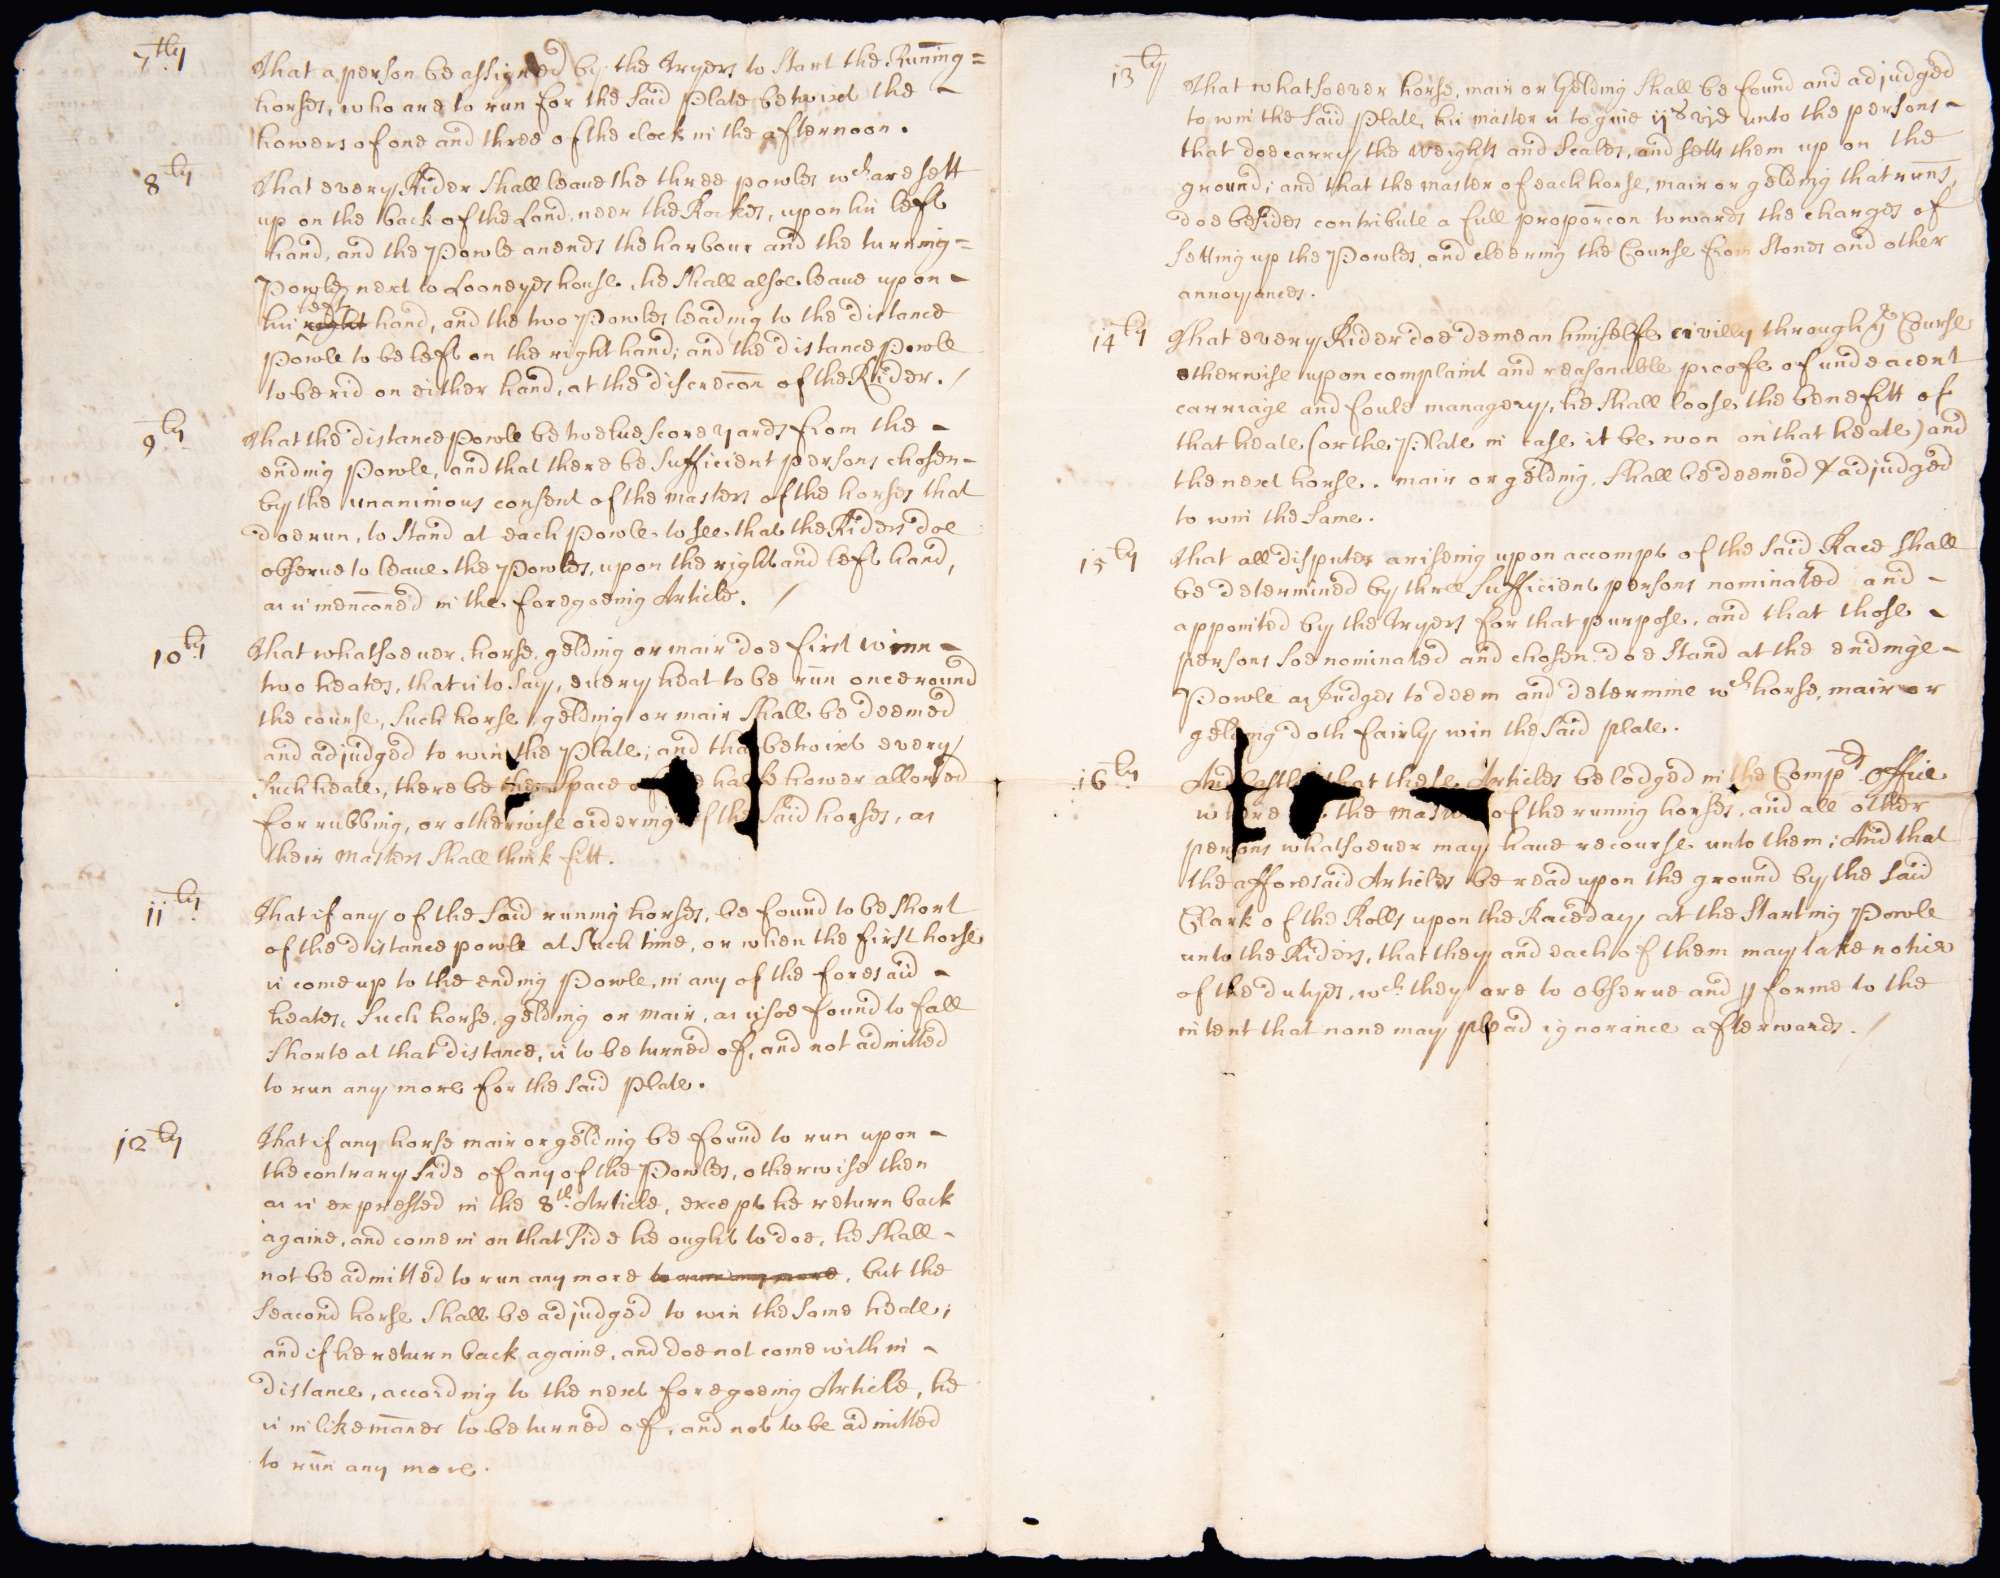 7thly
That a person be assigned by the Tryers to Start the Runing=
horses, who are to run for the Said Plate betwixt the -
howers of one and three of the clock in the afternoon.
8ly
That every Rider Shall leave the three powles wch are sett
up on the back of the Land, neer the Rockes, upon his left
hand, and the Powle anends the harbour and the turning=
Powle next to Looneyes house, he Shall alsoe leaue upon -
his right left hand, and the two Powles leading to the distance
Powle to be left on the right hand; and the distance Powle
to be rid on either hand, at the discrecon of the Rider. /
9ly
That the distance Powle be twelue score yards from the -
ending Powle, and that there be Sufficient persons chosen -
by the unanimous consent of the masters of the horses that
doe run, to Stand at each Powle to see that the Riders doe
observe to leaue the Powles, upon the right and left hand,
as is menconed in the foregoeing Article. /
10ly
That whatsoeuer horse, gelding or mair doe first winn -
two heates, that is to Say, euery heat to be run once round
the course, Such horse gelding or mair Shall be deemed
and adjudged to win the Plate; and that betwixt every
Such heate, there be the Space of halfe hower allowed
for rubbing, or otherwise ordering of the Said horses, as
their masters Shall think fitt.
11ly
That if any of the Said runing horses, be found to be Short
of the distance powle at Such time, or when the first horse
is come up to the ending Powle, in any of the foresaid -
heates, Such horse, gelding or mair, as is soe found to fall
Shorte at that distance, is to be turned of, and not admitted
to run any more for the Said Plate.
12ly
That if any horse mair or gelding be found to run upon -
the contrary Side of any of the Powles, otherwise then
as is expressed in the 8th Article, except he return back
againe, and come in on that Side he ought to doe, he Shall -
not be admitted to run any more to run any more, but the
Seacond horse Shall be adjudged to win the Same heate;
and if he return back againe, and doe not come within -
distance, according to the next foregoeing Article, he
is in like maner to be turned of, and not to be admitted
to run any more.
13ly
That whatsoever horse, mair or Gelding Shall be found and adjudged
to win the Said Plate, his master is to giue ijs vjd unto the persons -
that doe carry the Weights and Scales, and setts them up on the
ground; and that the master of each horse, mair or gelding that runs,
doe besides contribute a full proporcon towards the charges of
Setting up the Powles, and cleering the Course from Stones and other
annoyances.
14ly
That every Rider doe demean himselfe civilly through ye Course
otherwise upon complaint and reasonable proofe of undeacent
carriage and foule managery, he Shall loose the benefitt of
that heate (or the Plate in case it be won on that heate) and
the next horse, mair or gelding, Shall be deemed & adjudged
to win the Same.
15ly
That all disputes ariseing upon accompt of the Said Race Shall
be determined by three Sufficient persons nominated and -
appointed by the Tryers for that purpose, and that those -
persons Soe nominated and chosen doe Stand at the endinge -
Powle as Judges to deem and determine wch horse, mair or
gelding doth fairly win the Said plate.
16ly
And lastly that these Articles be lodged in the Compd Office
where the masters of the runing horses, and all other
persons whatsoeuer may haue recourse unto them; And that
the afforesaid Articles be read upon the ground by the Said
Clark of the Rolls upon the Raceday at the Starting Powle
unto the Riders, that they and each of them may take notice
of the dutyes, wch they are to observe and pforme to the
intent that none may plead ignorance afterwards. /